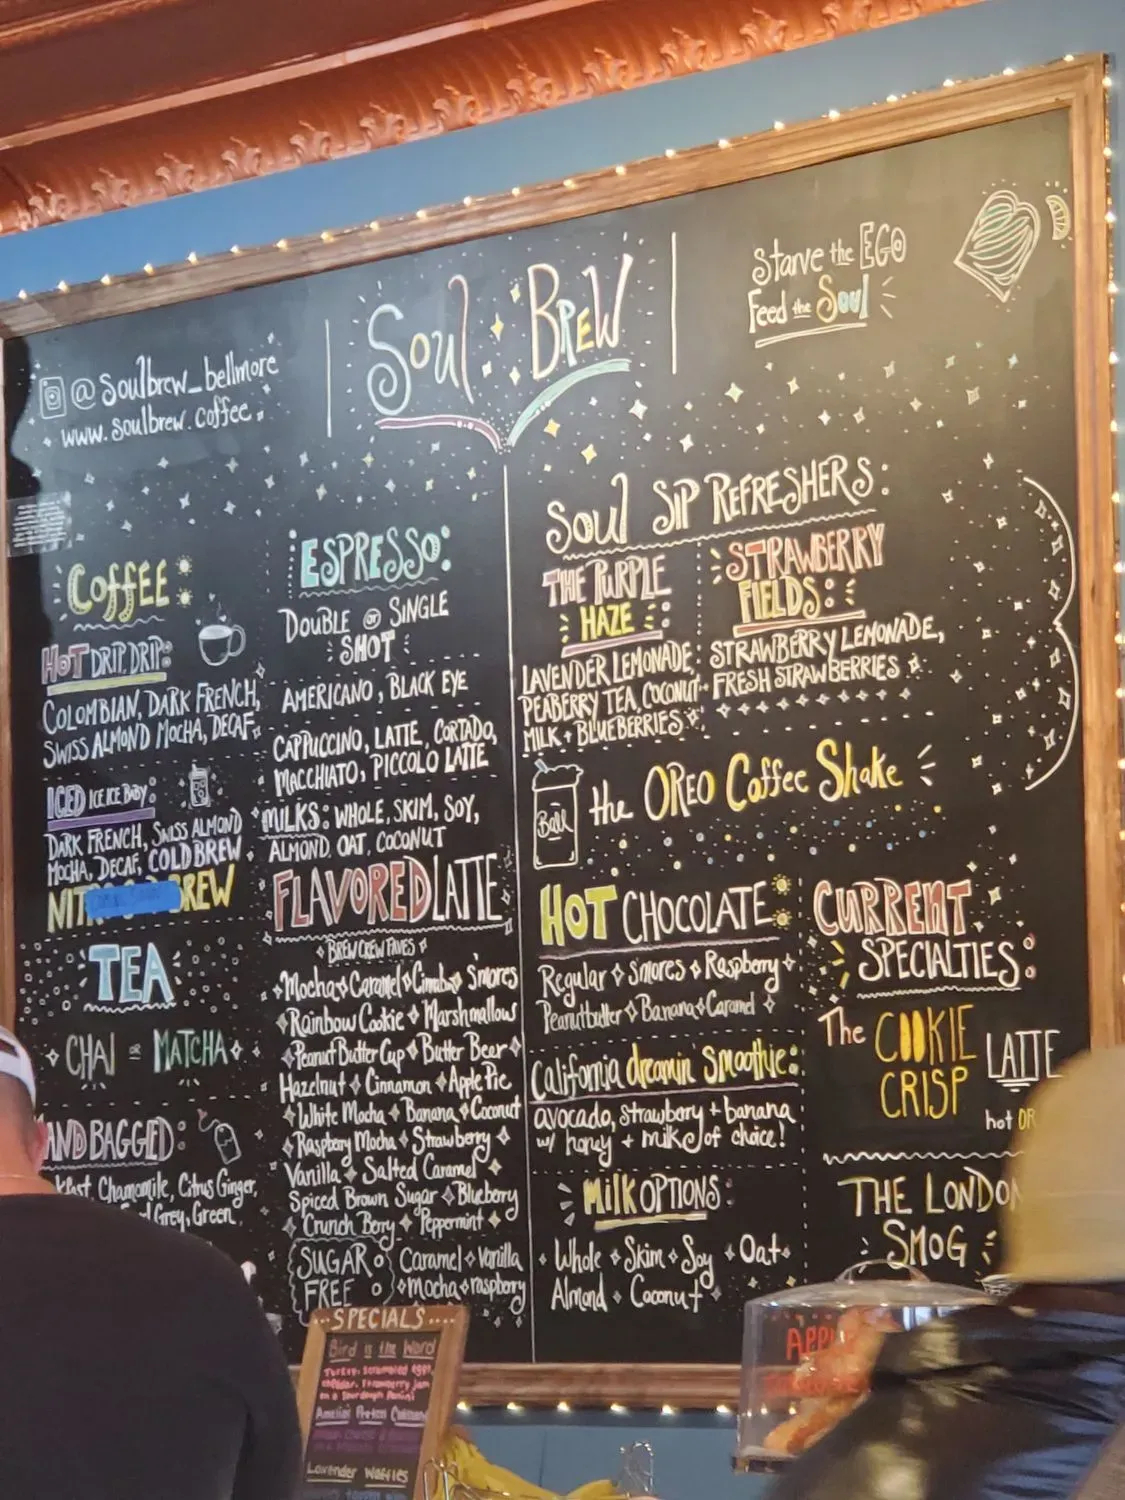 Soul BREW
Starve the EGO
Feed the Soul
@ Soulbrew_bellmore
www.soulbrew.coffee
COFFEE:
HOT DRIP, DRIP:
COLOMBIAN, DARK FRENCH,
SWISS ALMOND MOCHA, DECAF
ICED ICE ICE BABY:
DARK FRENCH, SWISS ALMOND
MOCHA, DECAF, COLD BREW
BREW
TEA
CHAI or MATCHA
AND BAGGED:
Chamomile, Citrus Ginger,
Grey, Green
ESPRESSO:
DOUBLE or SINGLE
SHOT
AMERICANO, BLACK EYE
CAPPUCCINO, LATTE, CORTADO,
MACCHIATO, PICCOLO LATTE
MILKS: WHOLE, SKIM, SOY,
ALMOND, OAT, COCONUT
FLAVORED LATTE
BREW CREW FAVES
Mocha Caramel S'mores
Rainbow Cookie Marshmallow
Peanut Butter Cup Butter Beer
Hazelnut Cinnamon Apple Pie
White Mocha Banana Coconut
Raspberry Mocha Strawberry
Vanilla Salted Caramel
Spiced Brown Sugar Blueberry
Crunch Berry Peppermint
SUGAR FREE Caramel Vanilla
Mocha raspberry
Soul SIP REFRESHERS:
THE PURPLE
HAZE:
LAVENDER LEMONADE,
PEABERRY TEA, COCONUT
MILK + BLUEBERRIES
STRAWBERRY
FIELDS:
STRAWBERRY LEMONADE,
FRESH STRAWBERRIES
Ball
the OREO Coffee Shake
HOT CHOCOLATE:
Regular S'mores Raspberry
Peanutbutter Banana Caramel
California dreamin' Smoothie:
avocado, strawberry + banana
w/ honey + milk of choice!
MILK OPTIONS:
Whole Skim Soy Oat
Almond Coconut
CURRENT
SPECIALTIES:
The COOKIE
CRISP LATTE
hot OR
THE LONDON
SMOG
SPECIALS
Bird is the Word
Turkey, scrambled eggs,
cheddar, strawberry jam
on a sourdough panini
Lavender Waffles